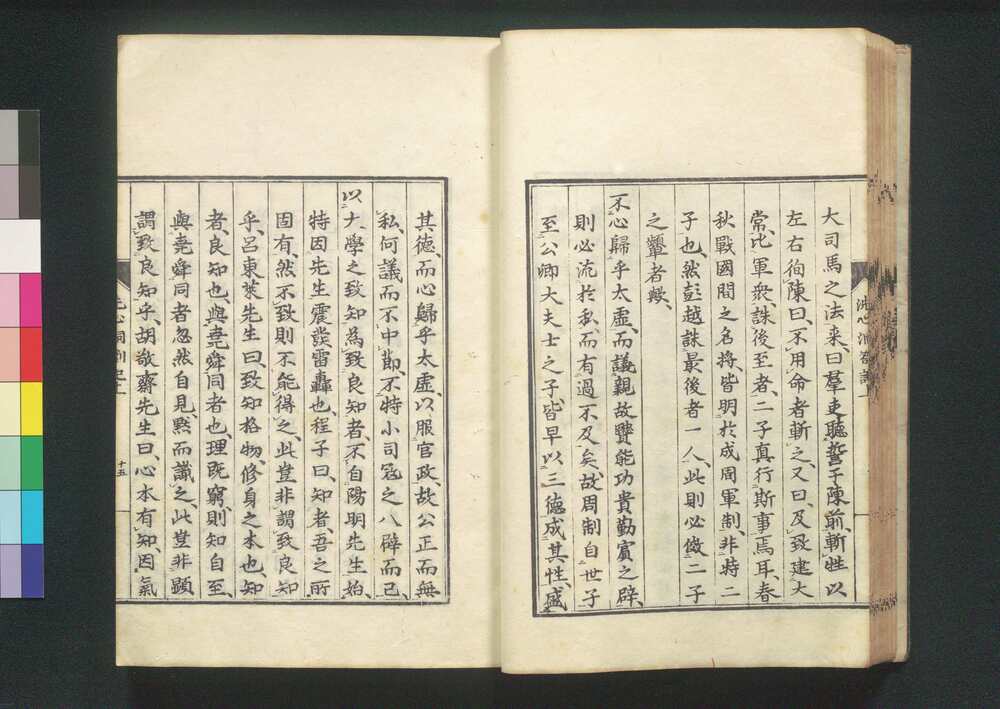 洗心洞劄記
大司馬之法来曰羣吏聽誓于陳前斬牲以
左右徇陳曰不用命者斬之又曰及致建大
常比軍衆誅後至者二子真行斯事焉耳春
秋戰國間之名将皆明於成周軍制非特二
子也然彭越誅最後者一人此則必傚二子
之顰者歟
不心歸乎太虚而議親故賢能功貴勤賓之辟
則必流於私而有過不及矣故周制自世子
至公卿大夫士之子皆早以三德成其性盛
其德而心歸乎太虚以服官政故公正而無
私何議而不中節不特小司寇之八辟而已
以大學之致知為致良知者不自陽明先生始
特因先生震発雷轟也程子曰知者吾之所
固有然不致則不能得之此豈非謂致良知
乎呂東萊先生曰致知格物修身之本也知
者良知也與堯舜同者也理既窮則知自至
與堯舜同者忽然自見黙而識之此豈非顕
謂致良知乎胡敬齋先生曰心本有知因氣
十五